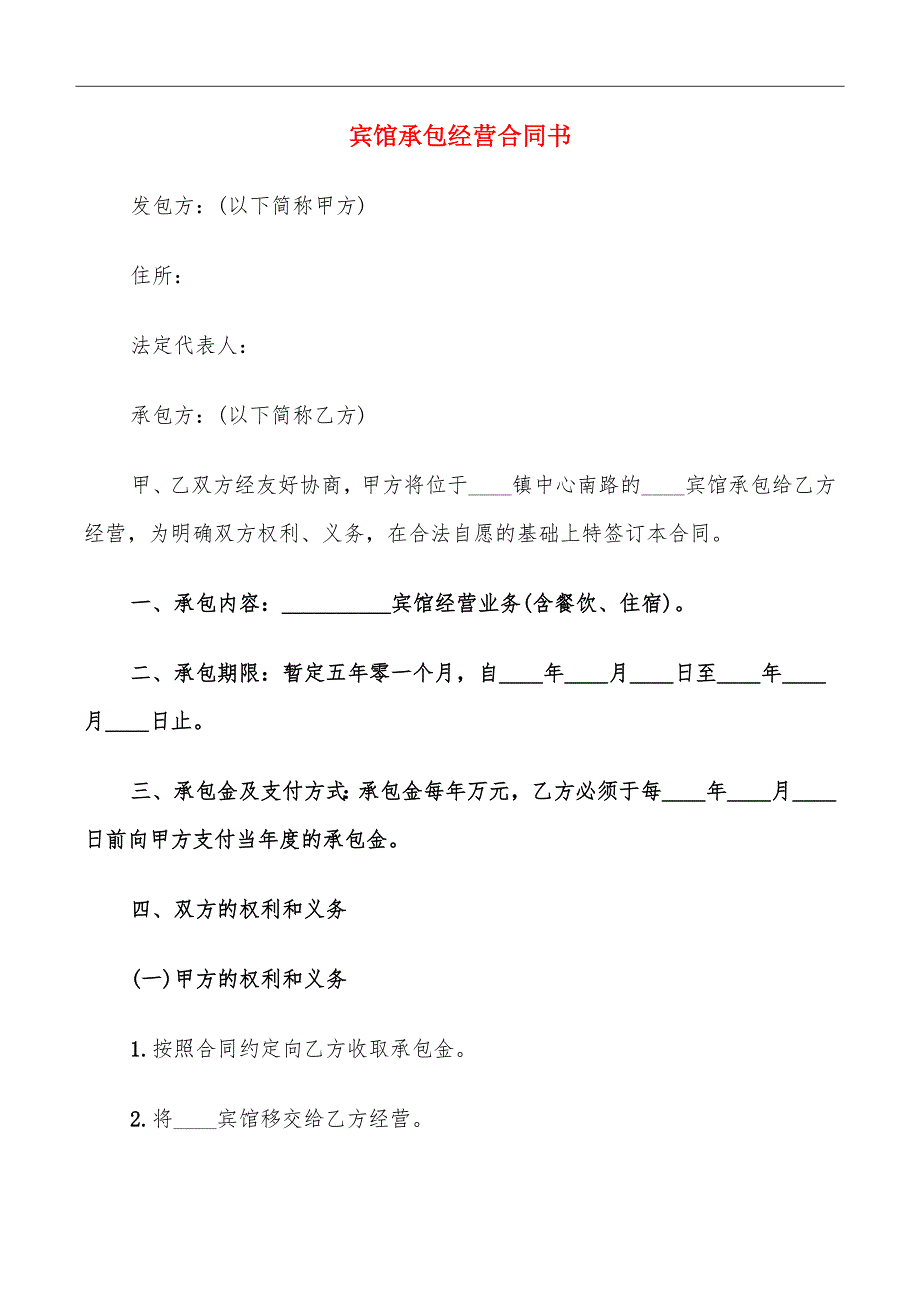 宾馆承包经营合同书
发包方：(以下简称甲方)
住所：
法定代表人：
承包方：(以下简称乙方)
甲、乙双方经友好协商，甲方将位于____镇中心南路的____宾馆承包给乙方
经营，为明确双方权利、义务，在合法自愿的基础上特签订本合同。
一、承包内容：__________宾馆经营业务(含餐饮、住宿)。
二、承包期限：暂定五年零一个月，自____年____月____日至____年____
月____日止。
三、承包金及支付方式：承包金每年万元，乙方必须于每____年____月____
日前向甲方支付当年度的承包金。
四、双方的权利和义务
(一)甲方的权利和义务
1.按照合同约定向乙方收取承包金。
2.将____宾馆移交给乙方经营。